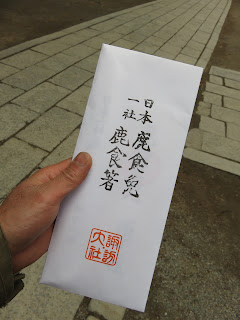 日本一社
鹿食免
鹿食箸
諏訪大社